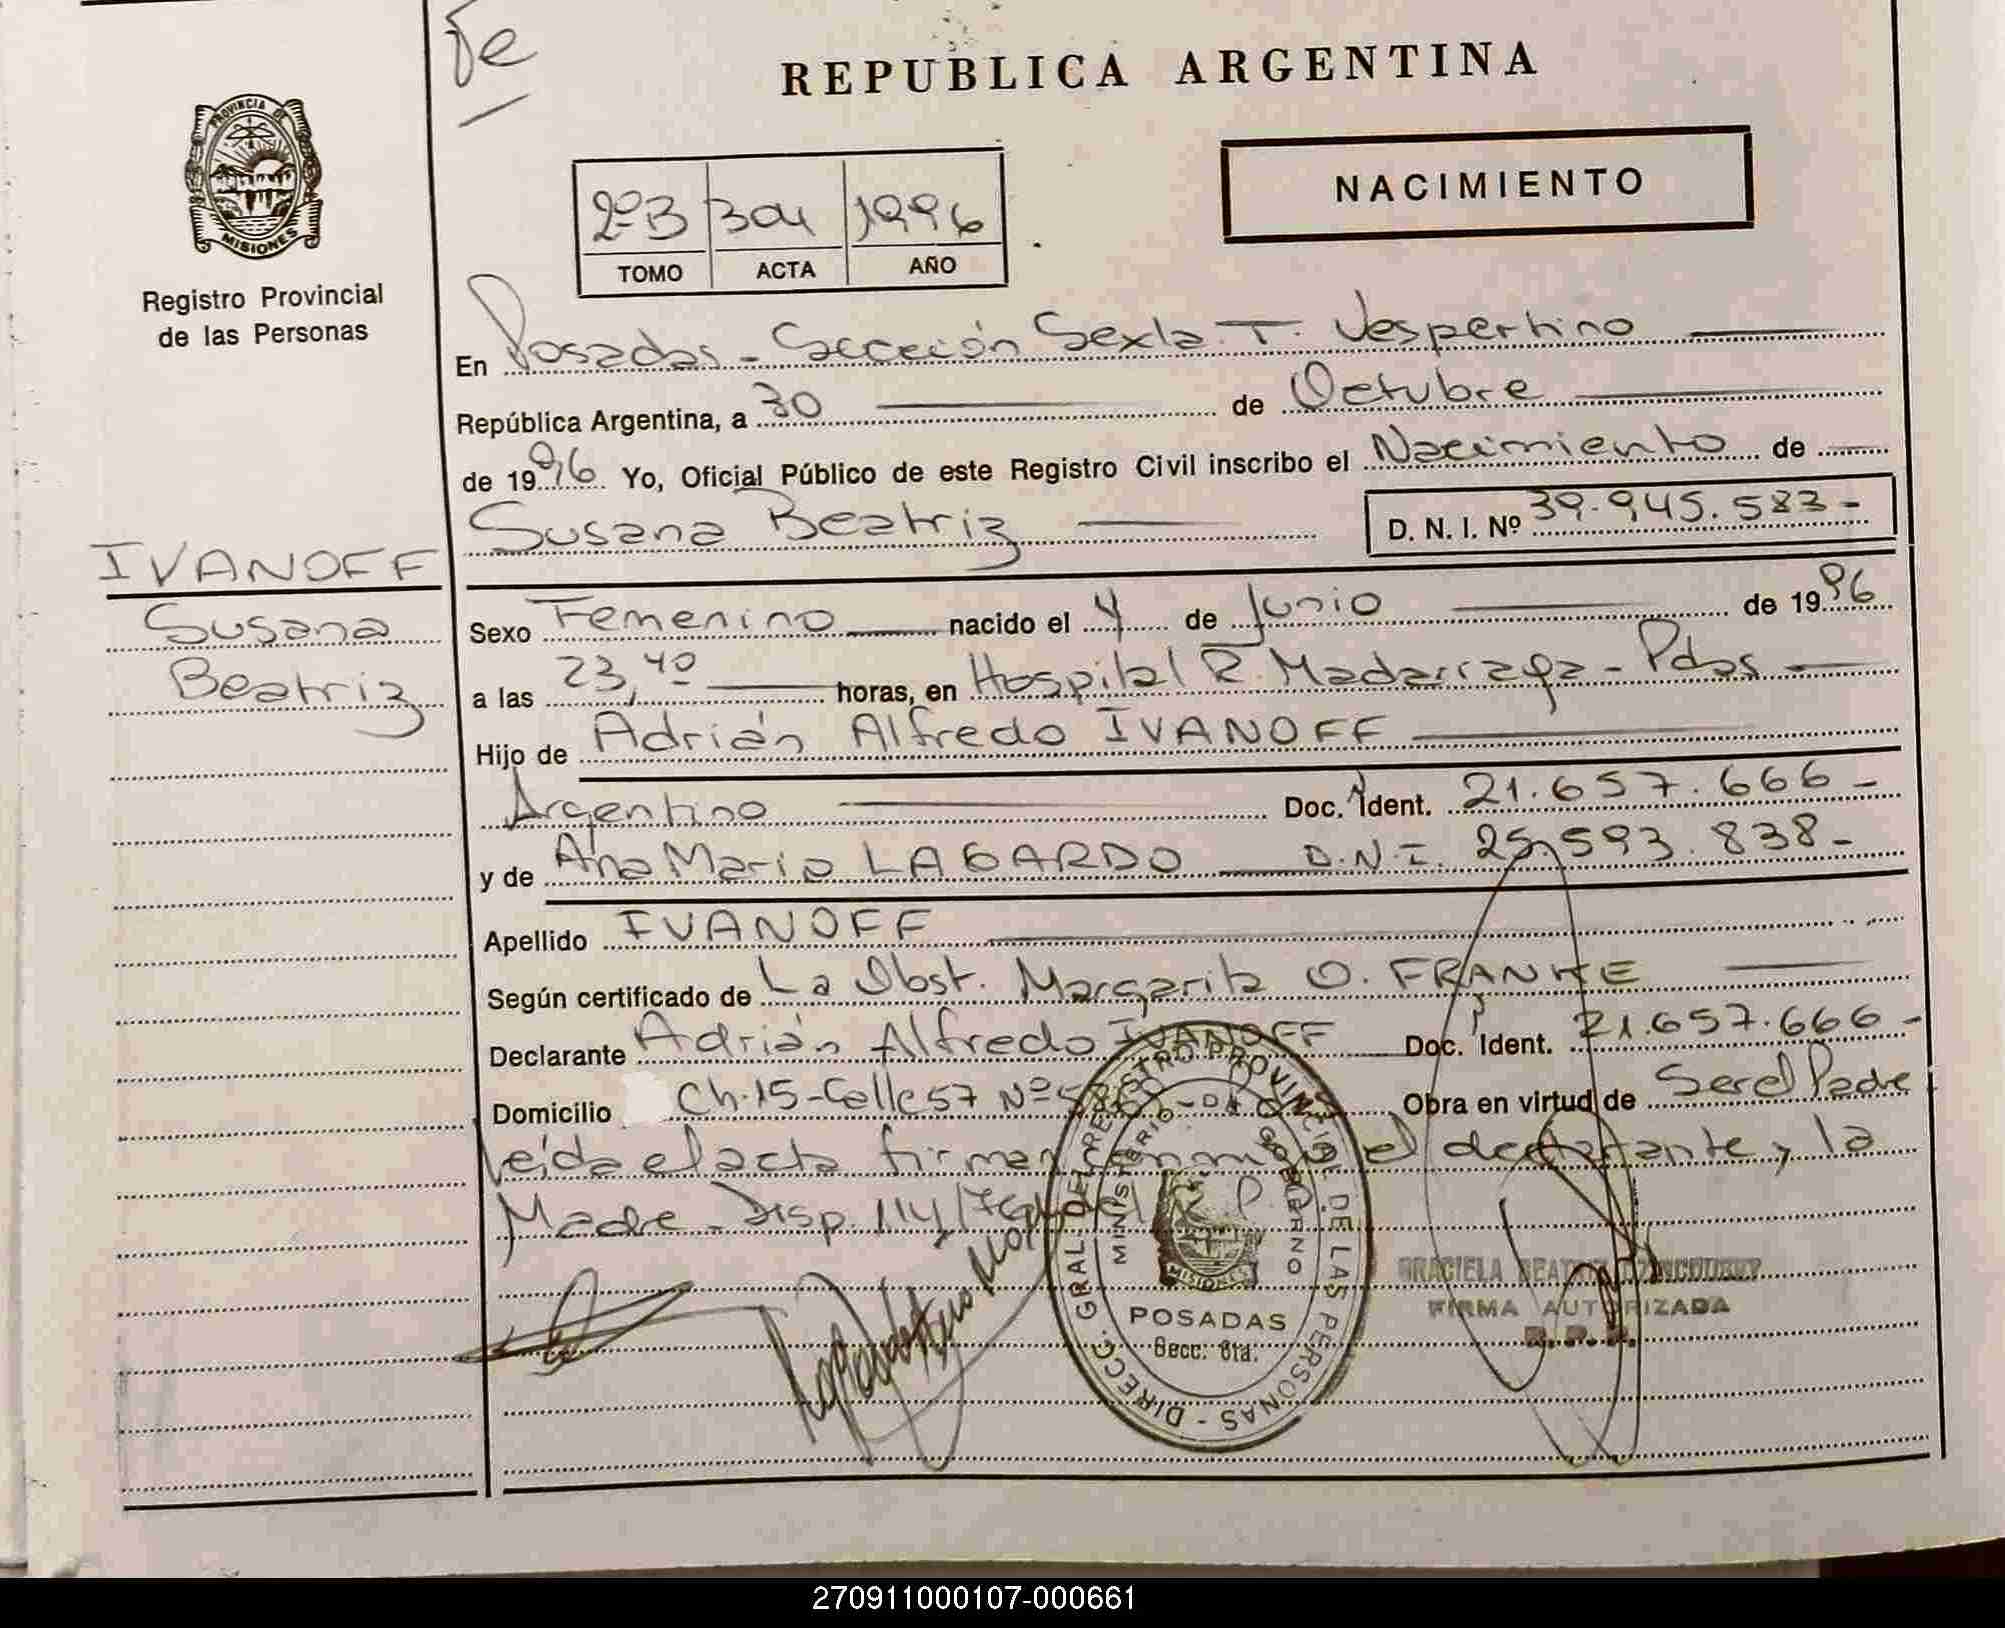 fe
REPUBLICA ARGENTINA
PROVINCIA DE
MISIONES
Registro Provincial
de las Personas
NACIMIENTO
2ºB 304 1996
TOMO ACTA AÑO
En Posadas - Sección Sexta. T. Vespertino
República Argentina, a 30 de Octubre
de 1996 Yo, Oficial Público de este Registro Civil inscribo el Nacimiento de
Susana Beatriz D. N. I. Nº 39.945.583-
IVANOFF
Susana
Beatriz
Sexo Femenino nacido el 4 de Junio de 1996
a las 23,40 horas, en Hospital R. Madarriaga - Pdas
Hijo de Adrián Alfredo IVANOFF
Argentino Doc. Ident. 21.657.666-
y de Ana Maria LAGARDO D.N.I. 25.593.838-
Apellido IVANOFF
Según certificado de La Obst. Margarita O. FRANKE
Declarante Adrián Alfredo IVANOFF Doc. Ident. 21.657.666-
Domicilio Ch.15-Calle 57 Nº Obra en virtud de Ser el Padre
Leída el acta firman conmigo el declarante y la
Madre - Disp. 114/ R.P.P.
DIRECC. GRAL. DEL REGISTRO PROVINCIAL DE LAS PERSONAS
MINISTERIO DE GOBIERNO
MISIONES
POSADAS
Secc. 6ta.
GRACIELA
FIRMA AUTORIZADA
R.P.P.
270911000107-000661